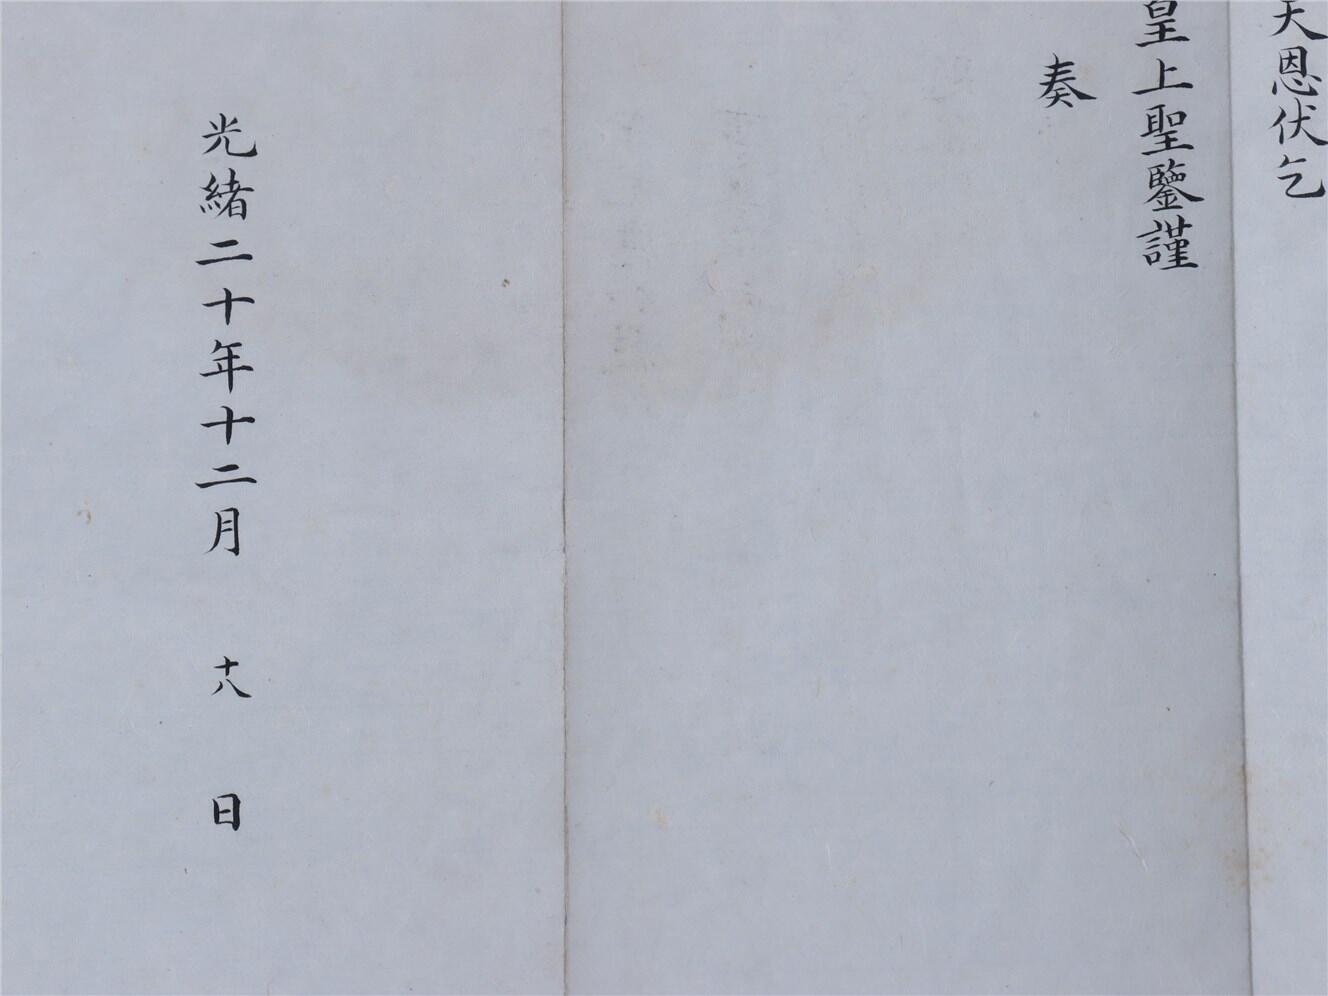 天恩伏乞
皇上聖鑒謹
奏
光緒二十年十二月十八日